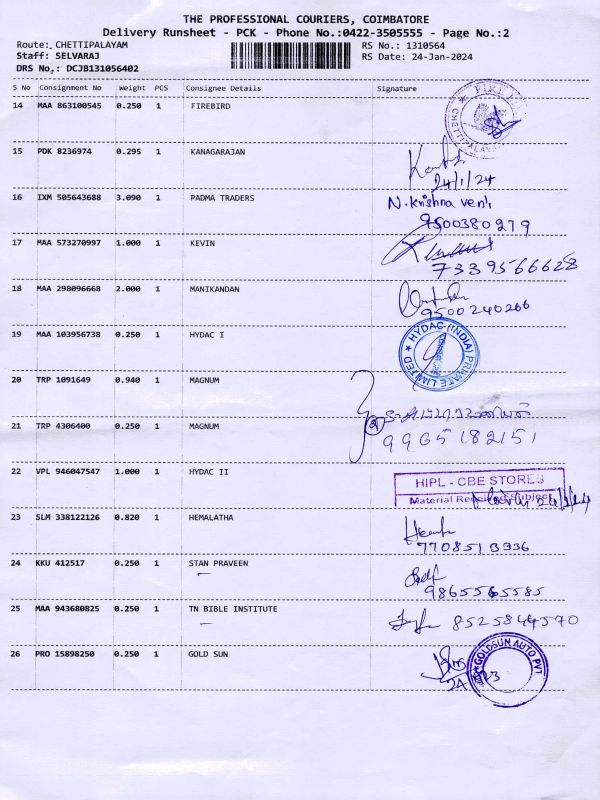 THE PROFESSIONAL COURIERS, COIMBATORE
Delivery Runsheet - PCK - Phone No.:0422-3505555 - Page No.:2
Route: CHETTIPALAYAM RS No.: 1310564
Staff: SELVARAJ RS Date: 24-Jan-2024
DRS No,: DCJB131056402
S No Consignment No Weight PCS Consignee Details Signature
14 MAA 863100545 0.250 1 FIREBIRD
15 PDK 8236974 0.295 1 KANAGARAJAN
24/1/24
16 IXM 505643688 3.090 1 PADMA TRADERS N.krishna veni
9500380279
17 MAA 573270997 1.000 1 KEVIN
7339566628
18 MAA 298096668 2.000 1 MANIKANDAN
9500240266
19 MAA 103956738 0.250 1 HYDAC I HYDAC (INDIA) PRIVATE LIMITED
20 TRP 1091649 0.940 1 MAGNUM
21 TRP 4306400 0.250 1 MAGNUM
9965182151
22 VPL 946047547 1.000 1 HYDAC II HIPL - CBE STORES
Material Received Subject
23 SLM 338122126 0.820 1 HEMALATHA
7708513336
24 KKU 412517 0.250 1 STAN PRAVEEN
9865565585
25 MAA 943680825 0.250 1 TN BIBLE INSTITUTE 8525844570
26 PRO 15898250 0.250 1 GOLD SUN GOLDSUN AUTO PVT